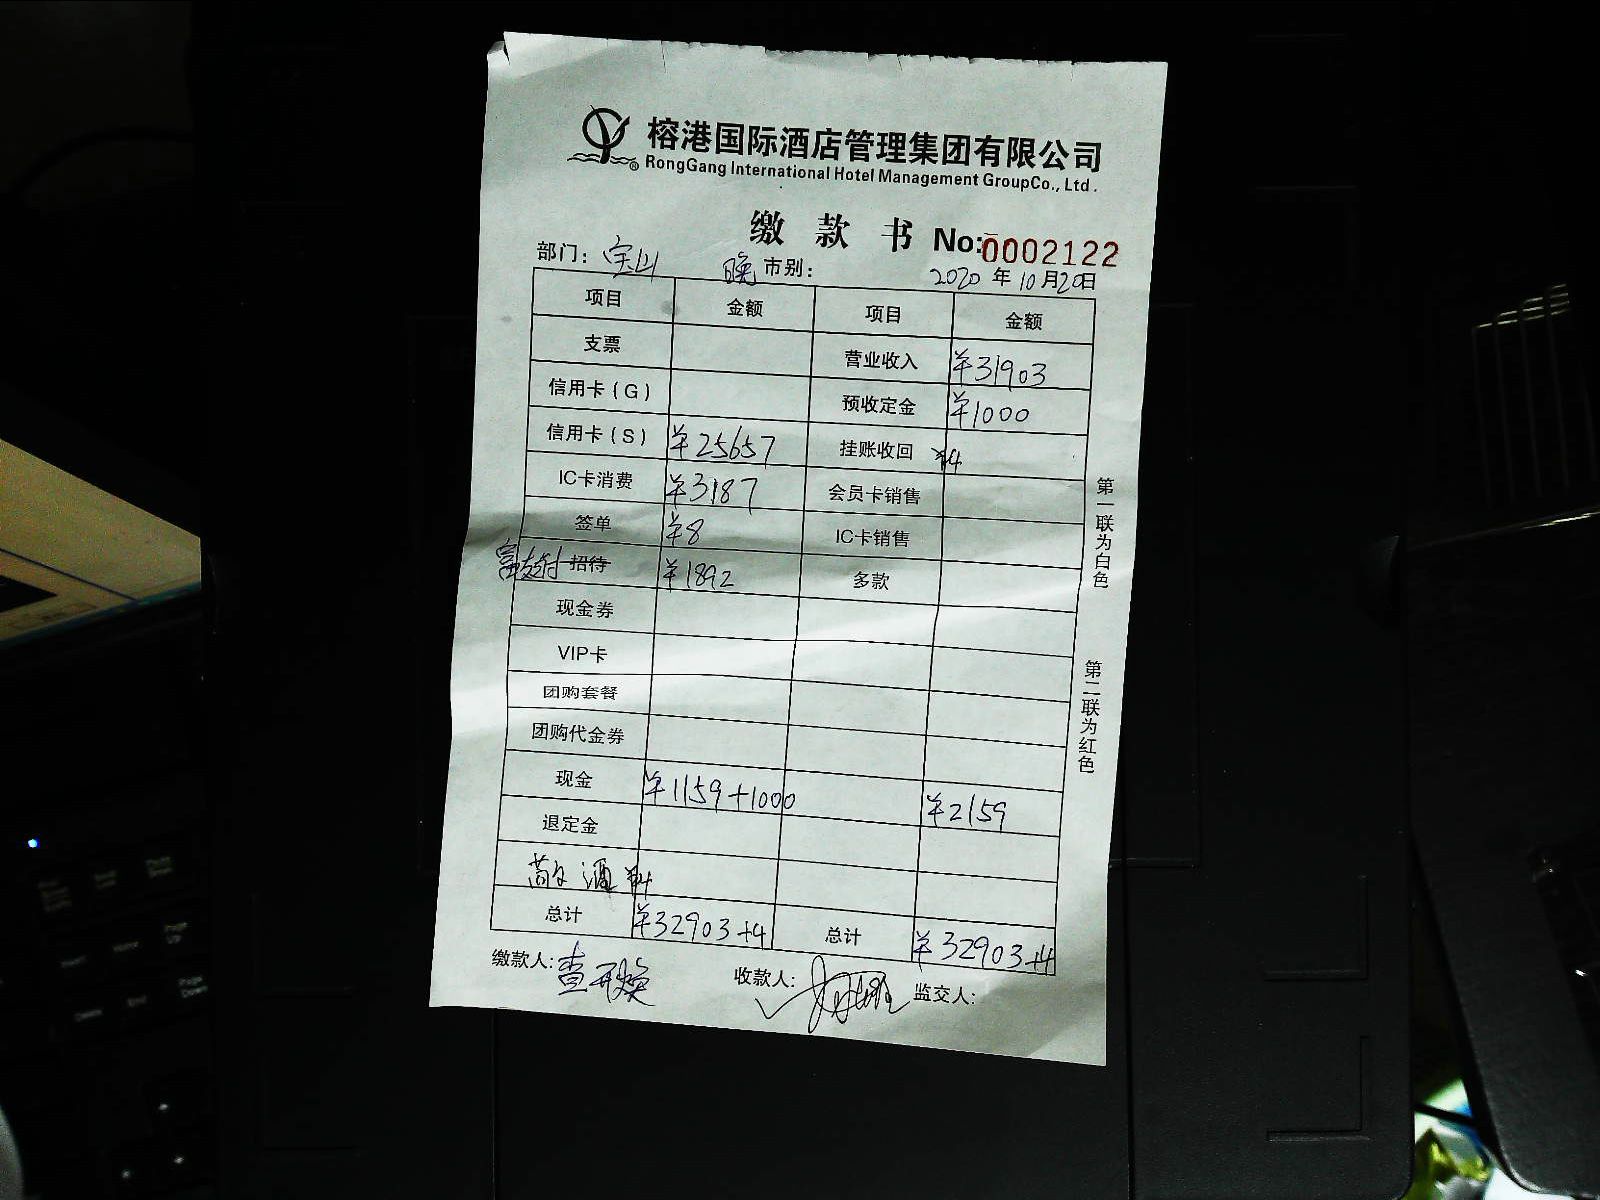 榕港国际酒店管理集团有限公司
RongGang International Hotel Management GroupCo., Ltd.
缴 款 书 No:0002122
部门: 宝山 晚 市别: 2020 年 10 月 20 日
项目 金额 项目 金额
支票 营业收入 ¥31903
信用卡(G) 预收定金 ¥1000
信用卡(S) ¥25657 挂账收回 ¥4
IC卡消费 ¥3187 会员卡销售
签单 ¥8 IC卡销售
招待 ¥1892 多款
现金券
VIP卡
团购套餐
团购代金券
现金 ¥1159+1000 ¥2159
退定金
酒 ¥4
总计 ¥32903+4 总计 ¥32903+4
缴款人: 收款人: 监交人:
第一联为白色
第二联为红色